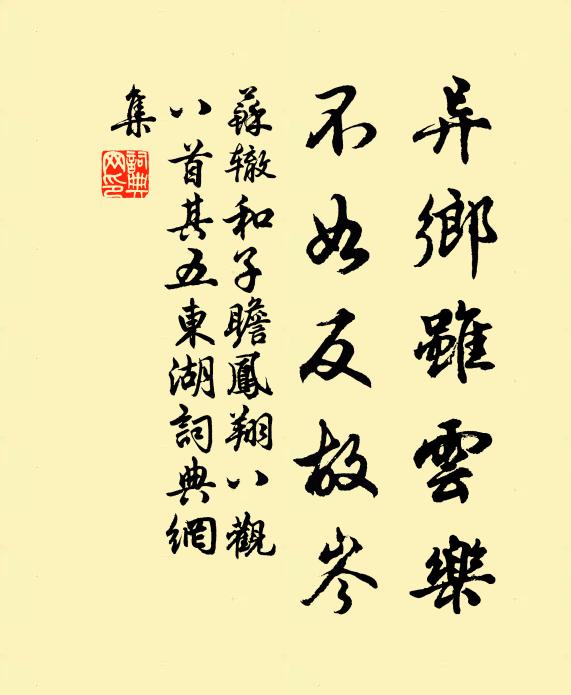 异鄉雖雲樂
不如反故岑
蘇轍和子瞻鳳翔八觀
八首其五東湖詞典網
集
詞典
网印